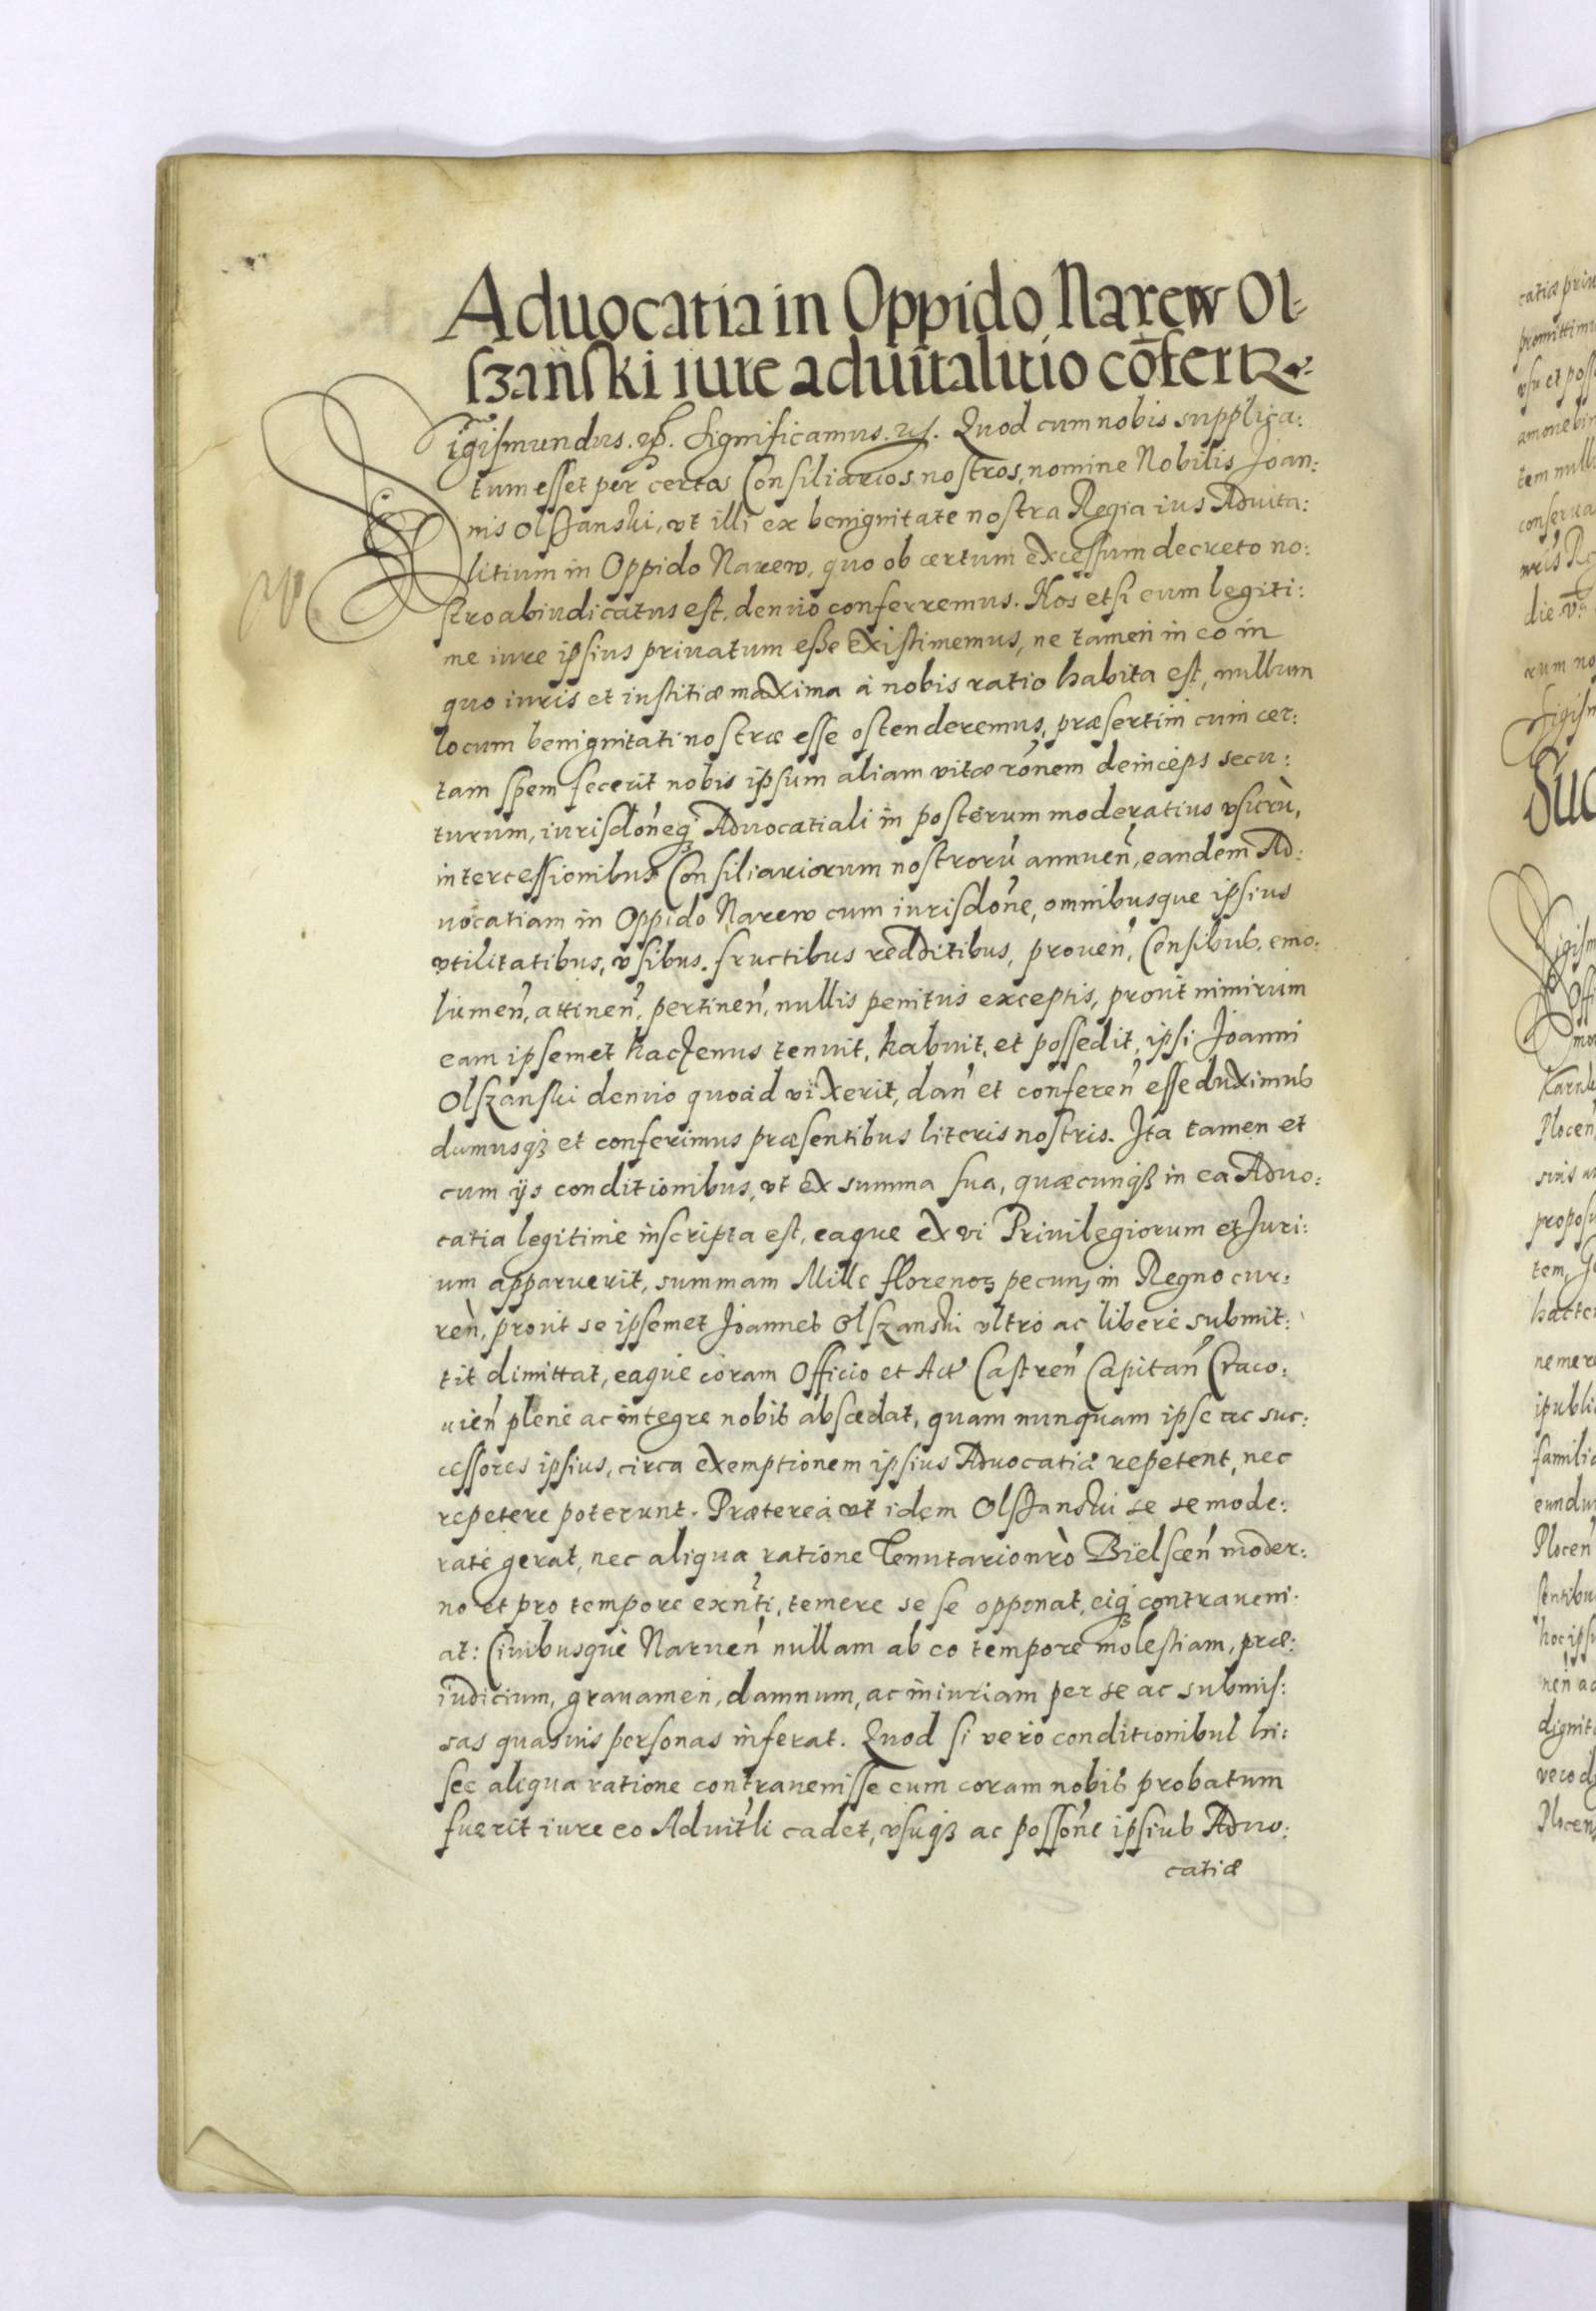 Aduocatia in Oppido Narew Ol-
szański iure aduitalitio cōfertꝛ
Sigismundus. ꝛc̃. Significamus. ꝛc̃. Quod cum nobis supplica:
tum esset per certos Consiliarios nostros, nomine Nobilis Joan:
nis Olszanski, vt illi ex benignitate nostra Regia ius Aduita:
litium in Oppido Narew, quo ob certum excessum decreto no:
stro abiudicatus est, denuo conferremus. Nos etsi eum legiti:
me iure ipsius priuatum esse existimemus, ne tamen in eo in
quo iuris et iustitiæ maxima à nobis ratio habita est, nullum
locum benignitati nostræ esse ostenderemus, præsertim cum cer:
tam spem fecerit nobis ipsum aliam vitæ rōnem deinceps secu:
turum, iurisdōneq̃ Aduocatiali in posterum moderatius vsurũ,
intercessionibus Consiliariorum nostrorũ annueñ, eandem Ad:
uocatiam in Oppido Narew cum iurisdōne, omnibusque ipsius
vtilitatibus, vsibus, fructibus redditibus, proueñ, Censibus, emo:
lumeñ, attineñ, pertineñ, nullis penitus exceptis, prout nimirum
eam ipsemet hactenus tenuit, habuit, et possedit, ipsi Joanni
Olszanski denuo quoad vixerit, dañ et confereñ esse duximus
damusqȝ et conferimus præsentibus literis nostris. Ita tamen et
cum ijs conditionibus, vt ex summa sua, quæcunqȝ in ea Aduo:
catia legitime inscripta est, eaque ex vi Priuilegiorum et Juri:
um apparuerit, summam Mille florenoꝝ pecuniꝫ in Regno cur:
reñ, prout se ipsemet Joannes Olszanski vltro ac libere submit:
tit dimittat, eaque coram Officio et Act' Castreñ Capitañ Craco:
uieñ plene ac integre nobis abscedat, quam nunquam ipse ac suc:
cessores ipsius, circa exemptionem ipsius Aduocatiæ repetent, nec
repetere poterunt. Præterea vt idem Olszanski se se mode:
rate gerat, nec aliqua ratione Tenutario nrò Bielsceñ moder:
no et pro tempore exñti, temere se se opponat, eiq̃ contraueni:
at: Ciuibusque Narueñ nullam ab eo tempore molestiam, præ:
iudicium, grauamen, damnum, ac iniuriam per se ac submis:
sas quasuis personas inferat. Quod si vero conditionibus hi:
sce aliqua ratione contrauenisse eum coram nobis probatum
fuerit iure eo Aduit̃li cadet, vsuqȝ ac possōne ipsius Aduo:
catiæ